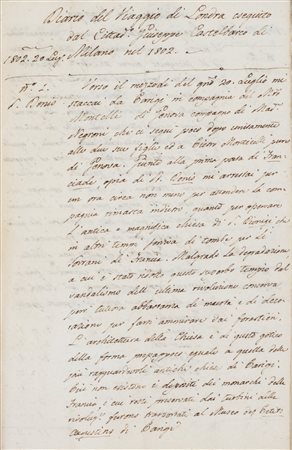 Diario del Viaggio di Londra eseguito
dal Cittad.° Giuseppe Castelbarco di
1802. 20 Lug.° Milano nel 1802.
N.° 1.
S. Dionis Verso il mezzodì del g.no 20. Luglio mi
staccai da Parigi in compagnia di
Monticelli di Genova compagno di Mad.
Negroni che ci seguì poco dopo unitamente
alle due sue figlie ed a Pietro Monticelli pure
di Genova. Giunto alla prima posta di Fran-
ciade, ossia di S. Dionis mi arrestai per
un ora circa non meno per attendere la com-
pagnia rimasta indietro, quanto per osservare
l'antica e magnifica chiesa di S. Dionigi che
in altri tempi serviva di tomba per li
Sovrani di Francia. Malgrado la degradazione
a cui è stato ridotto questo superbo tempio dal
vandalismo dell'ultima rivoluzione conserva
pur tuttora abbastanza di maestà e di deco-
razione per farsi ammirare dai forestieri.
L'architettura della Chiesa è di gusto gotico
della forma
più ragguardevoli antichi chiese di Parigi.
Più non esistono i depositi dei monarchi della
Francia, i cui resti preservati dai furbini alla
rivoluz.e furono trasportati al Museo
Augustins di Parigi